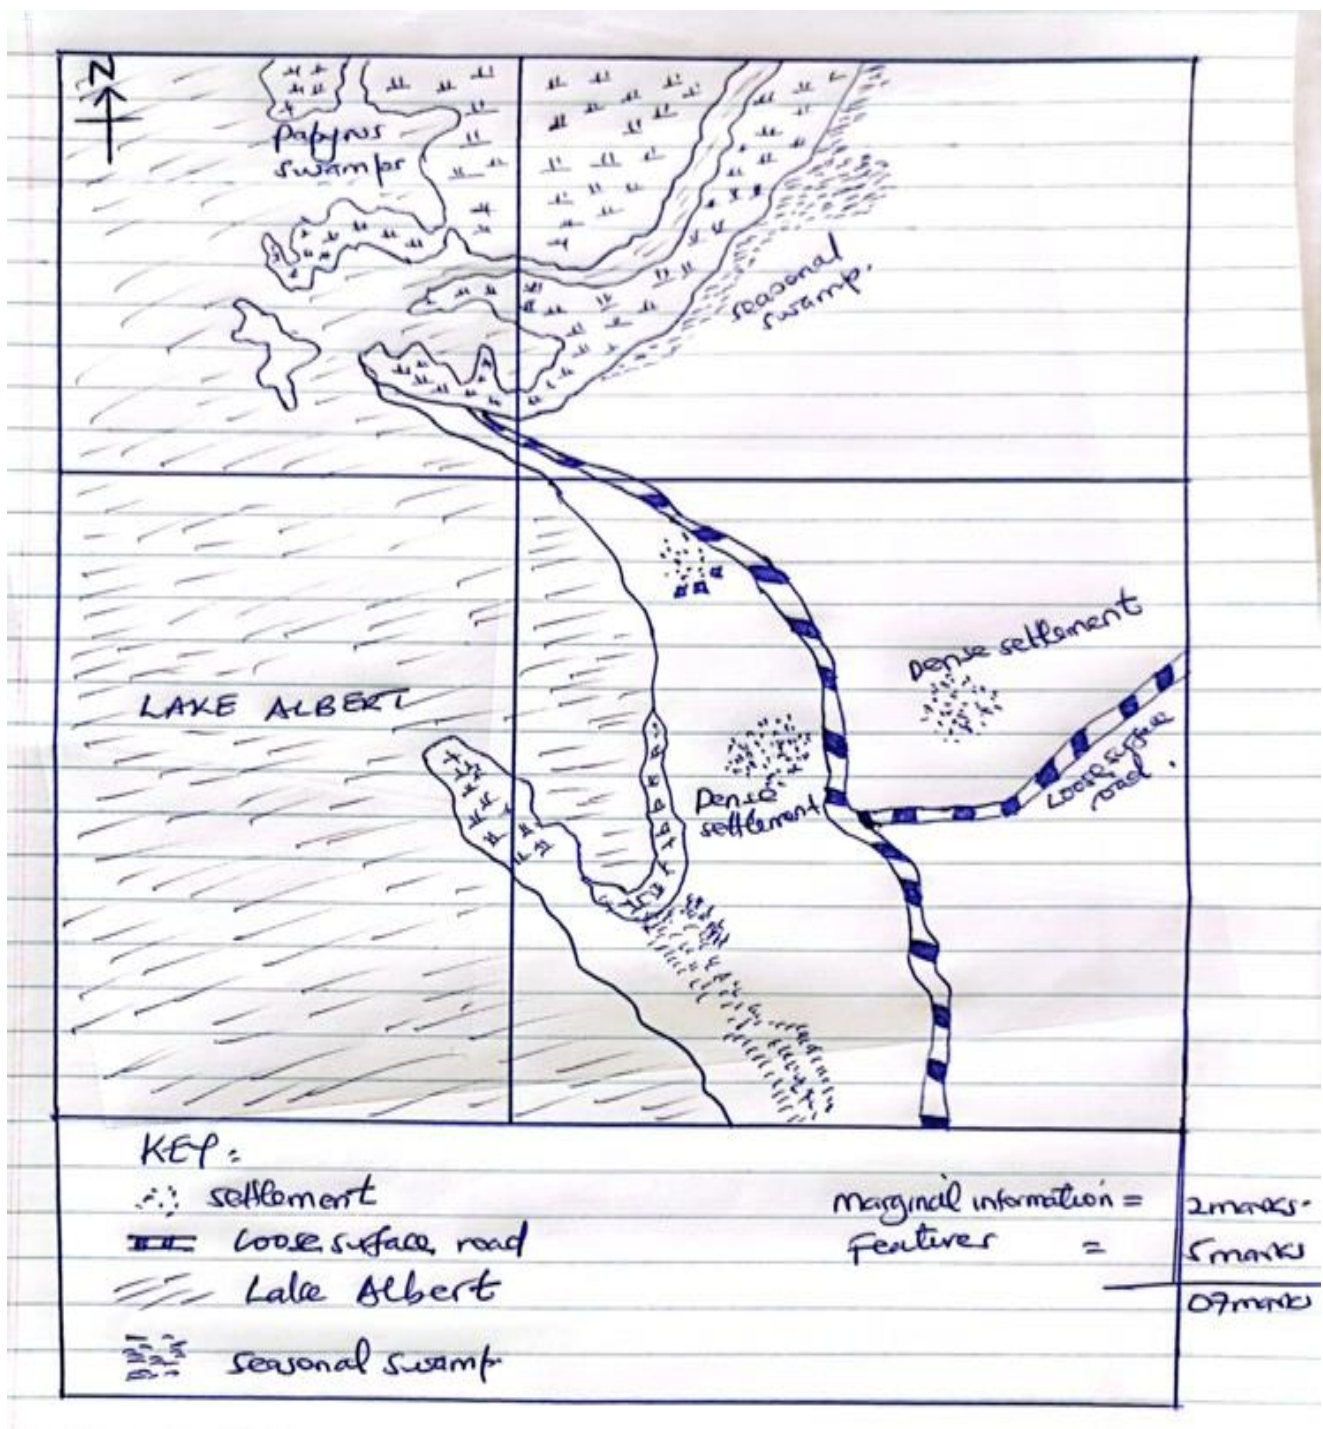 N
papyrus
swamps
seasonal
swamp.
Dense settlement
LAKE ALBERT
Dense
settlement
Loose surface
road.
KEY:
settlement
Loose surface road
Lake Albert
seasonal swamp
marginal information = 2marks.
Features = 5marks
07marks